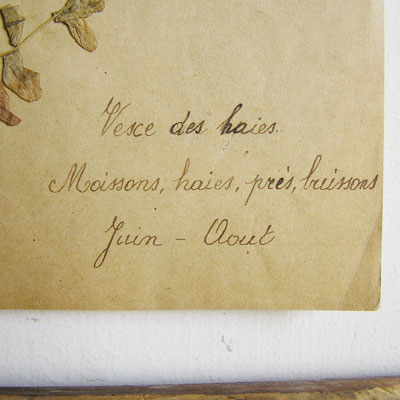 Vesce des haies.
Moissons, haies, prés, buissons
Juin - Aout